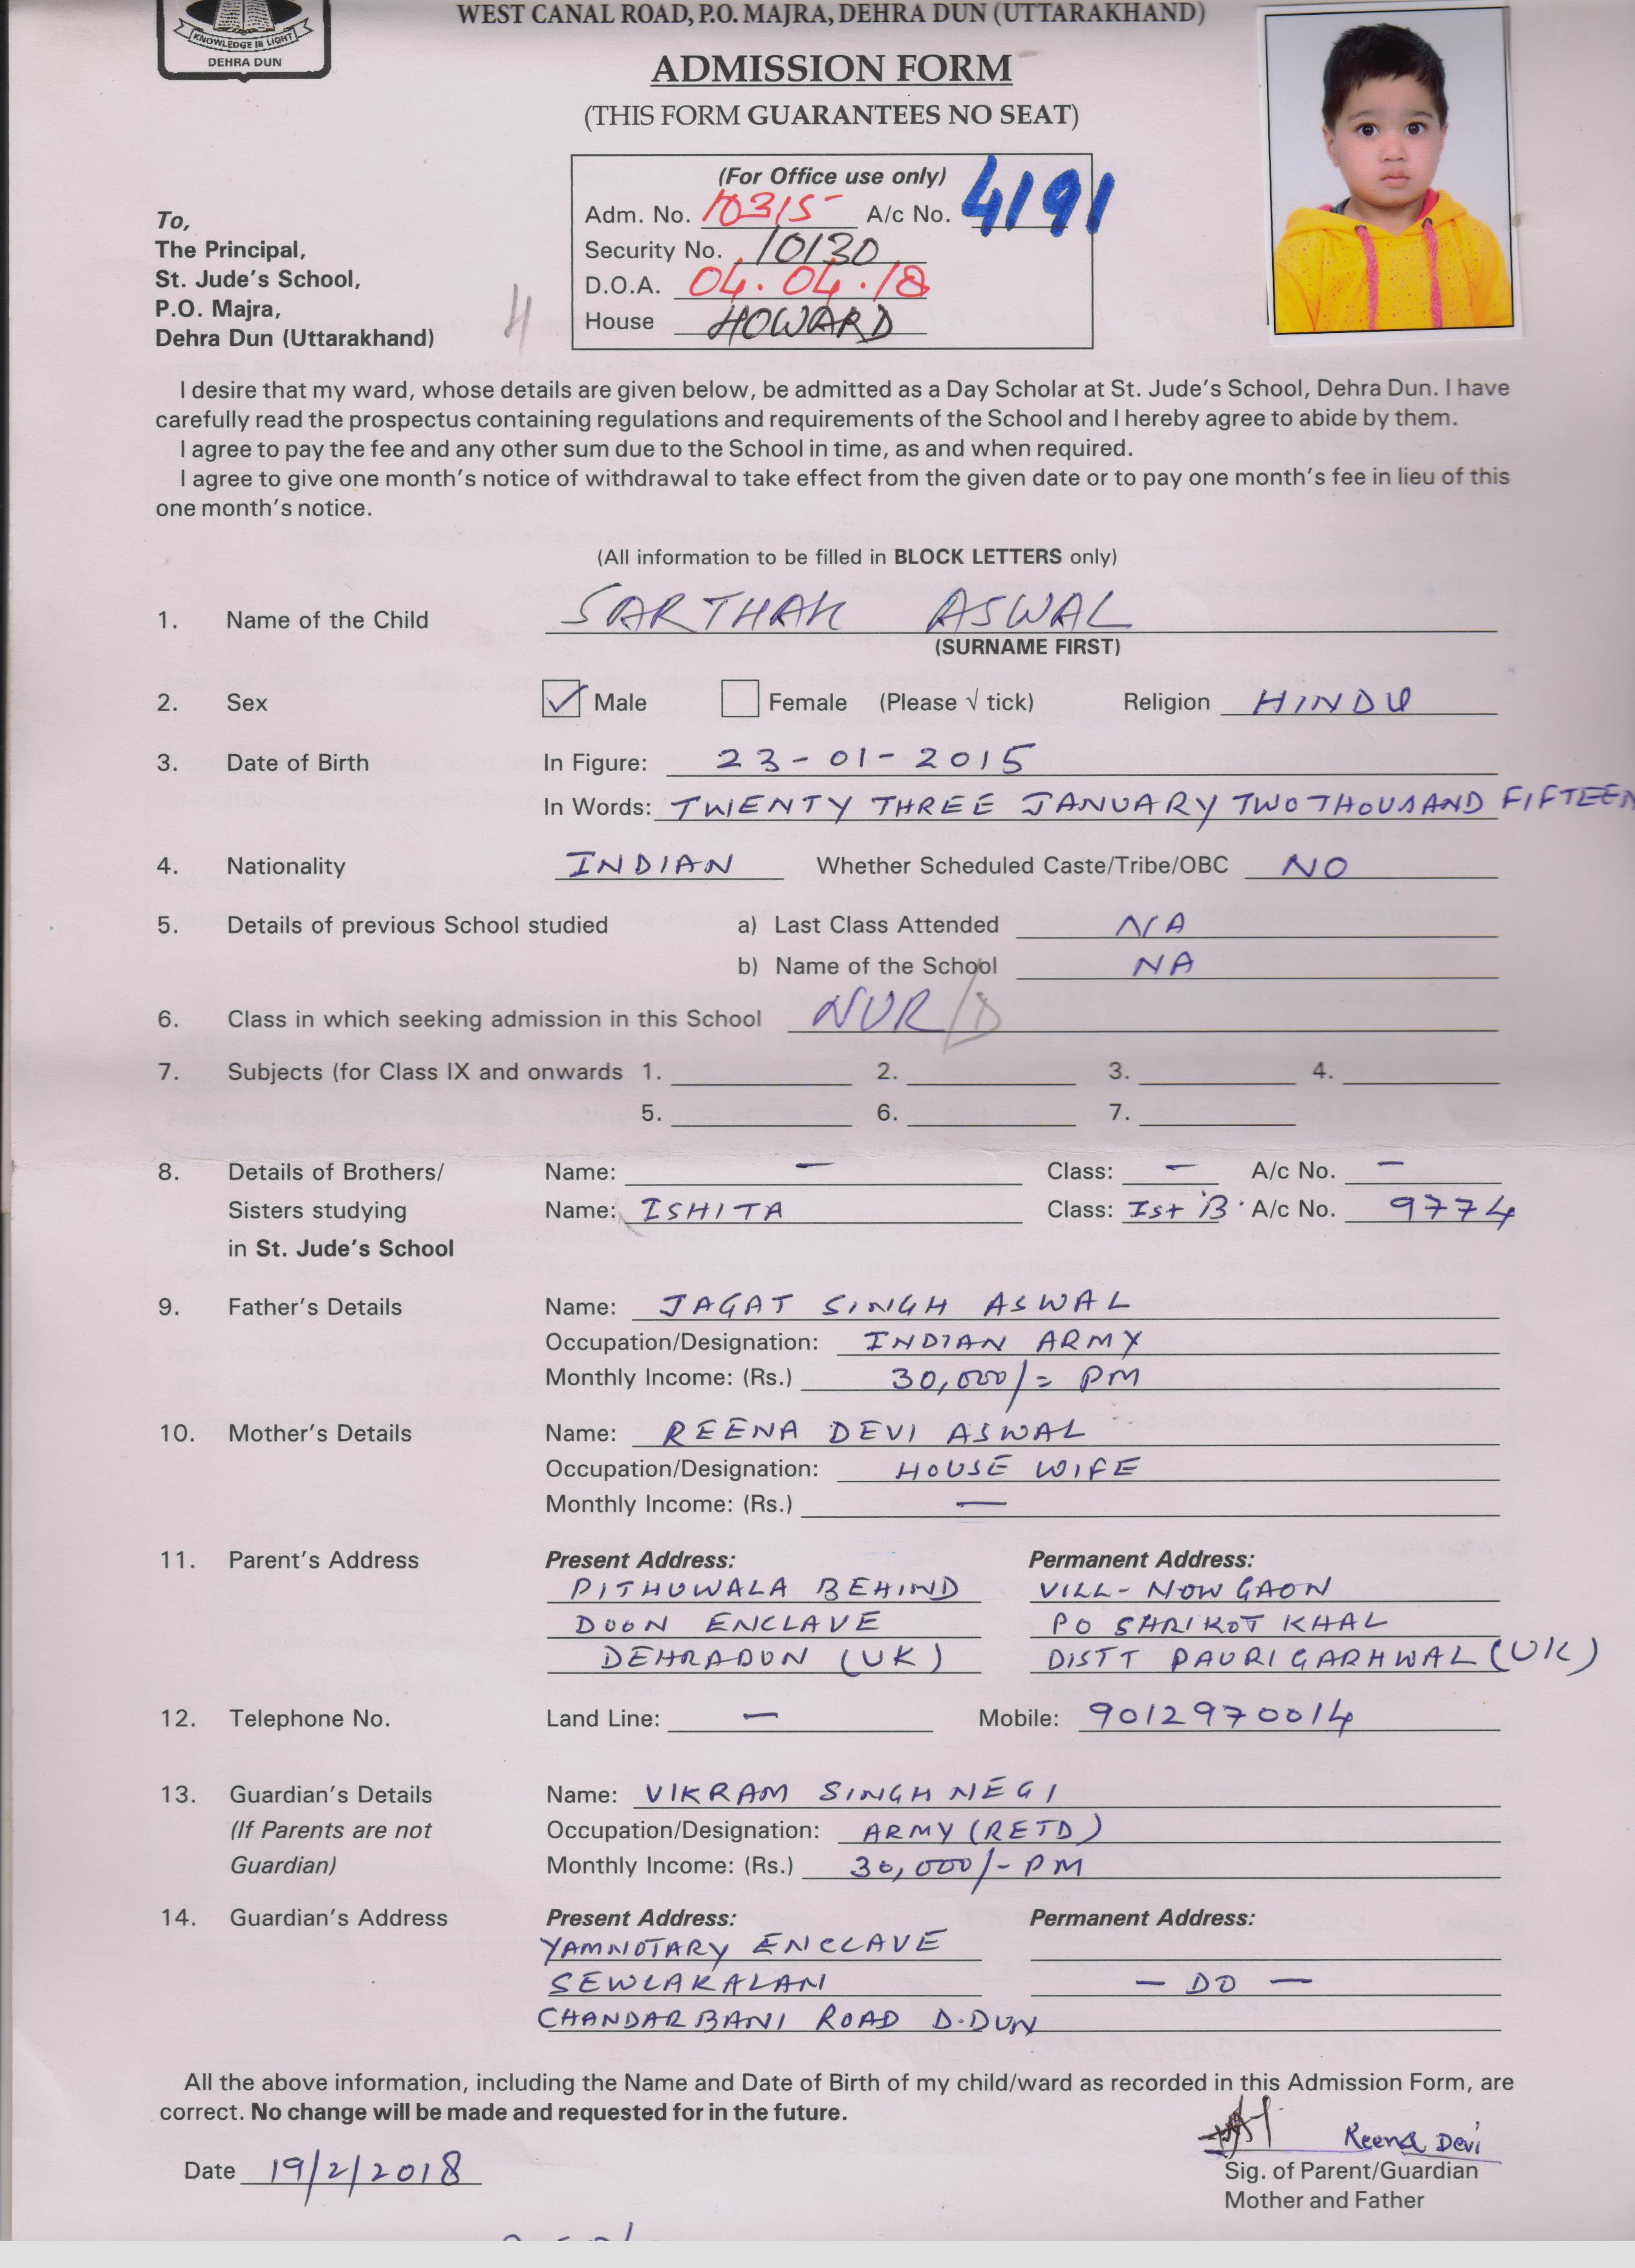 WEST CANAL ROAD, P.O. MAJRA, DEHRA DUN (UTTARAKHAND)
KNOWLEDGE IS LIGHT
DEHRA DUN
ADMISSION FORM
(THIS FORM GUARANTEES NO SEAT)
(For Office use only)
Adm. No. 10315 A/c No. 4191
Security No. 10130
D.O.A. 04.04.18
House HOWARD
To,
The Principal,
St. Jude's School,
P.O. Majra,
Dehra Dun (Uttarakhand)
I desire that my ward, whose details are given below, be admitted as a Day Scholar at St. Jude's School, Dehra Dun. I have
carefully read the prospectus containing regulations and requirements of the School and I hereby agree to abide by them.
I agree to pay the fee and any other sum due to the School in time, as and when required.
I agree to give one month's notice of withdrawal to take effect from the given date or to pay one month's fee in lieu of this
one month's notice.
(All information to be filled in BLOCK LETTERS only)
1. Name of the Child SARTHAK ASWAL
(SURNAME FIRST)
2. Sex ✓ Male Female (Please √ tick) Religion HINDU
3. Date of Birth In Figure: 23-01-2015
In Words: TWENTY THREE JANUARY TWO THOUSAND FIFTEEN
4. Nationality INDIAN Whether Scheduled Caste/Tribe/OBC NO
5. Details of previous School studied a) Last Class Attended NA
b) Name of the School NA
6. Class in which seeking admission in this School NUR/D
7. Subjects (for Class IX and onwards 1. 2. 3. 4.
5. 6. 7.
8. Details of Brothers/ Name: — Class: — A/c No. —
Sisters studying Name: ISHITA Class: Ist 'B' A/c No. 9774
in St. Jude's School
9. Father's Details Name: JAGAT SINGH ASWAL
Occupation/Designation: INDIAN ARMY
Monthly Income: (Rs.) 30,000/= PM
10. Mother's Details Name: REENA DEVI ASWAL
Occupation/Designation: HOUSE WIFE
Monthly Income: (Rs.) —
11. Parent's Address Present Address: Permanent Address:
PITHUWALA BEHIND VILL- NOWGAON
DOON ENCLAVE PO SHRIKOT KHAL
DEHRADUN (UK) DISTT PAURI GARHWAL (UK)
12. Telephone No. Land Line: — Mobile: 9012970014
13. Guardian's Details Name: VIKRAM SINGH NEGI
(If Parents are not Occupation/Designation: ARMY (RETD)
Guardian) Monthly Income: (Rs.) 30,000/- PM
14. Guardian's Address Present Address: Permanent Address:
YAMNOTARY ENCLAVE
SEWLAKALAN — DO —
CHANDARBANI ROAD D.DUN
All the above information, including the Name and Date of Birth of my child/ward as recorded in this Admission Form, are
correct. No change will be made and requested for in the future.
Reena Devi
Date 19/2/2018 Sig. of Parent/Guardian
Mother and Father